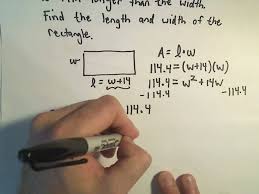 longer than the width.
Find the length and width of the
rectangle.
A = l·w
w
114.4 = (w+14)(w)
l = w+14
114.4 = w² + 14w
-114.4 -114.4
114.4